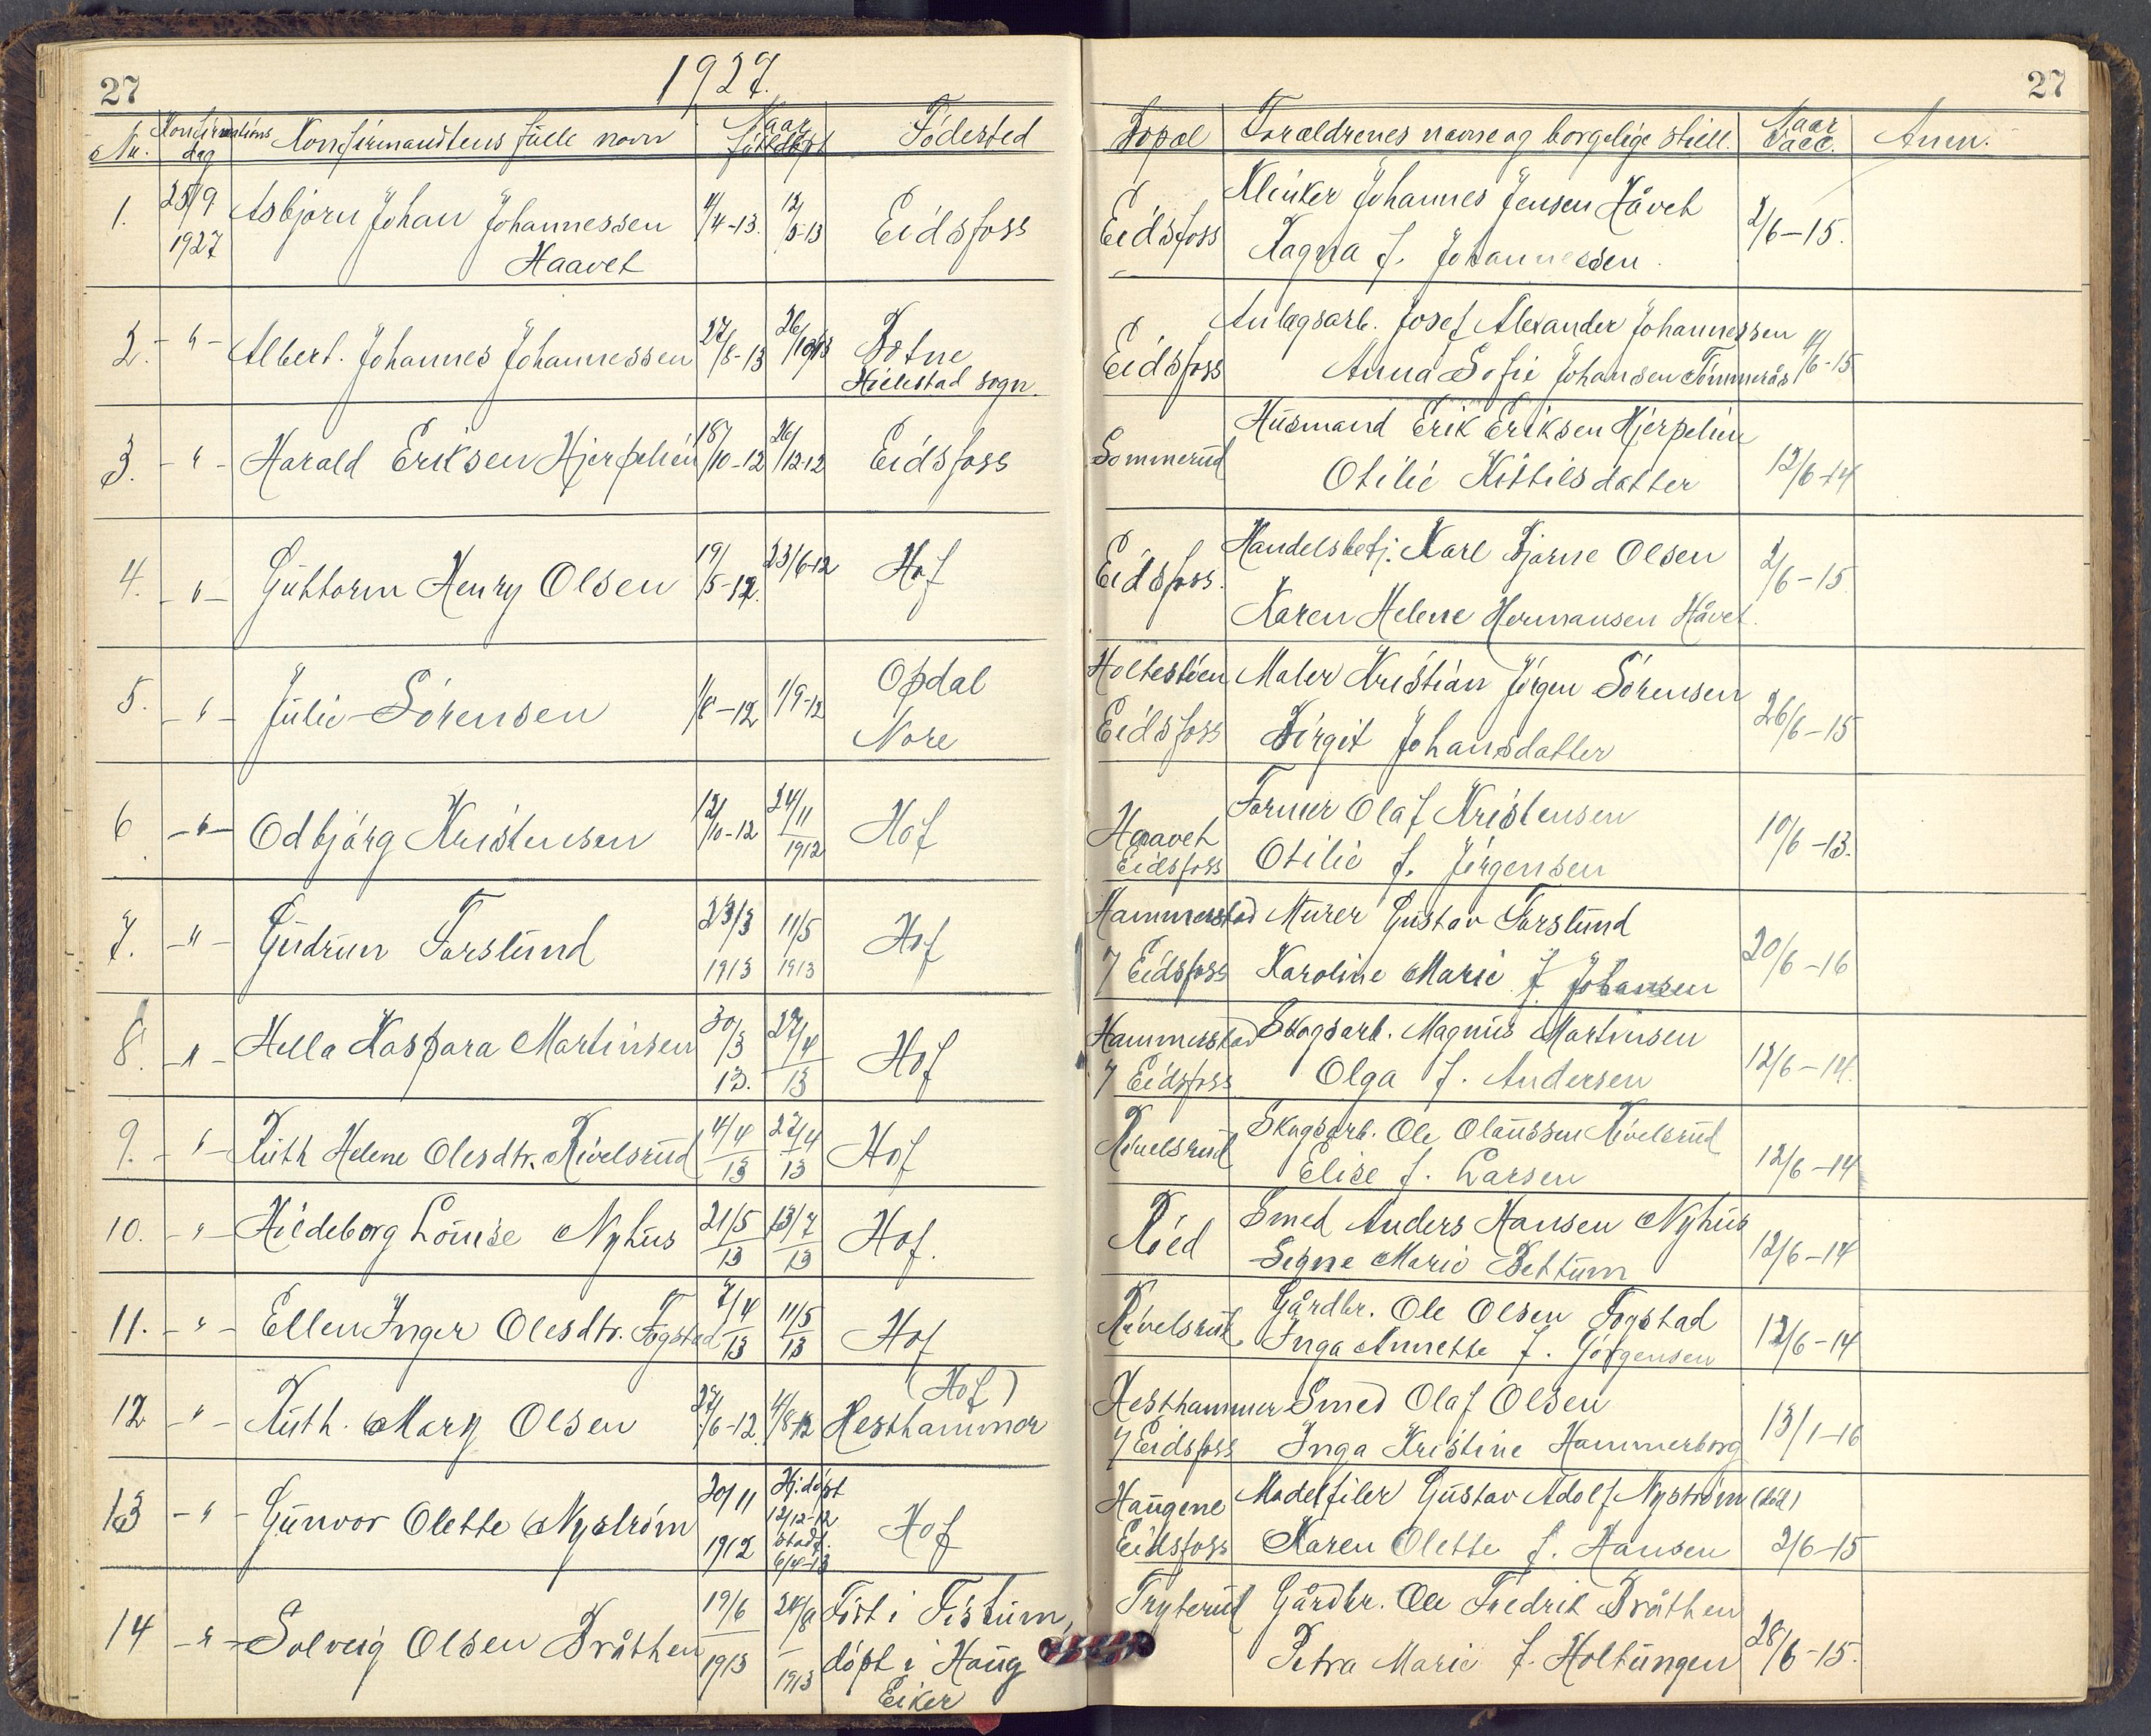 27
1927.
Nr.
Konfirmations
dag
Konfirmandtens fulle navn
Naar
født døpt
Födested
1.
25/9
1927
Asbjørn Johan Johannessen
Haavet
4/4-13.
12/5-13
Eidsfoss
2. - " -
Albert. Johannes Johannessen
27/8-13
26/10-13
Botne
Hillestad sogn.
3. - " -
Harald Eriksen Hjerpelien
18/10-12
26/12-12
Eidsfoss
4. - " -
Guttorm Henry Olsen
19/5-12.
23/6-12
Hof
5. - " -
Julie Sörensen
1/8-12
1/9-12
Opdal
Nore
6 - " -
Odbjörg Kristensen
12/10-12
24/11
1912
Hof
7. - " -
Gudrun Forslund
23/3
1913
11/5
1913
Hof
8. - " -
Hella Kaspara Martinsen
30/3
13.
27/4
13
Hof
9. - " -
Ruth Helene Olesdtr. Rivelsrud
4/4
13
27/4
13
Hof
10. - " -
Hildeborg Louise Nyhus
21/5
13
13/7
13
Hof.
11. - " -
Ellen Inger Olesdtr. Fogstad
7/4
13
11/5
13
Hof
12 - " -
Ruth. Mary Olsen
27/6-12.
4/8-12
(Hof)
Hesthammer
13 - " -
Gunvor Olette Nyström
20/11
1912
Hj.döpt
12/12-12
Stadf.
6/4-13
Hof
14 - " -
Solveig Olsen Bråthen
19/6
1913
24/8
1913
Föt i Fiskum,
döpt i Haug
Eiker
27
Bopæl
Forældrenes navne og borgelige still.
Naar
Vacc.
Anm.
Eidsfoss
Klinker Johannes Jensen Håvet
Ragna f. Johannessen.
2/6-15.
Eidsfoss
Anlægsarb. Josef Alexander Johannessen
Anna Sofie Johansen Tömmerås
4/6-15
Sommerud
Husmand Erik Eriksen Hjerpelien
Otilie Kittilsdatter
12/6-14
Eidsfoss.
Handelsbetj. Karl Bjarne Olsen
Karen Helene Hermansen Håvet.
2/6-15
Holtestöen
Eidsfoss
Maler Kristian Jörgen Sörensen
Birgit Johansdatter
26/6-15
Haavet
Eidsfoss
Former Olaf Kristensen
Otilie f. Jörgensen
10/6-13.
Hammerstad
7 Eidsfoss
Murer Gustav Forslund
Karoline Marie f Johansen
20/6-16
Hammerstad
7 Eidsfoss
Skogsarb. Magnus Martinsen
Olga f. Andersen
12/6-14.
Rivelsrud
Skogsarb. Ole Olaussen Rivelsrud
Elise f. Larsen
12/6-14
Röed
Smed Anders Hansen Nyhus
Signe Marie Bettum
12/6-14
Rivelsrud
Gårdbr. Ole Olsen Fogstad
Inga Annette f. Görgensen
12/6-14
Hesthammer
7 Eidsfoss
Smed Olaf Olsen
Inga Kristine Hammerborg
13/1-16
Haugene
Eidsfoss
Modelfiler Gustav Adolf Nyström (död)
Karen Olette f. Hansen
2/6-15
Tryterud
Gårdbr. Ole Fredrik Bråthen
Petra Marie f. Holtungen
28/6-15.